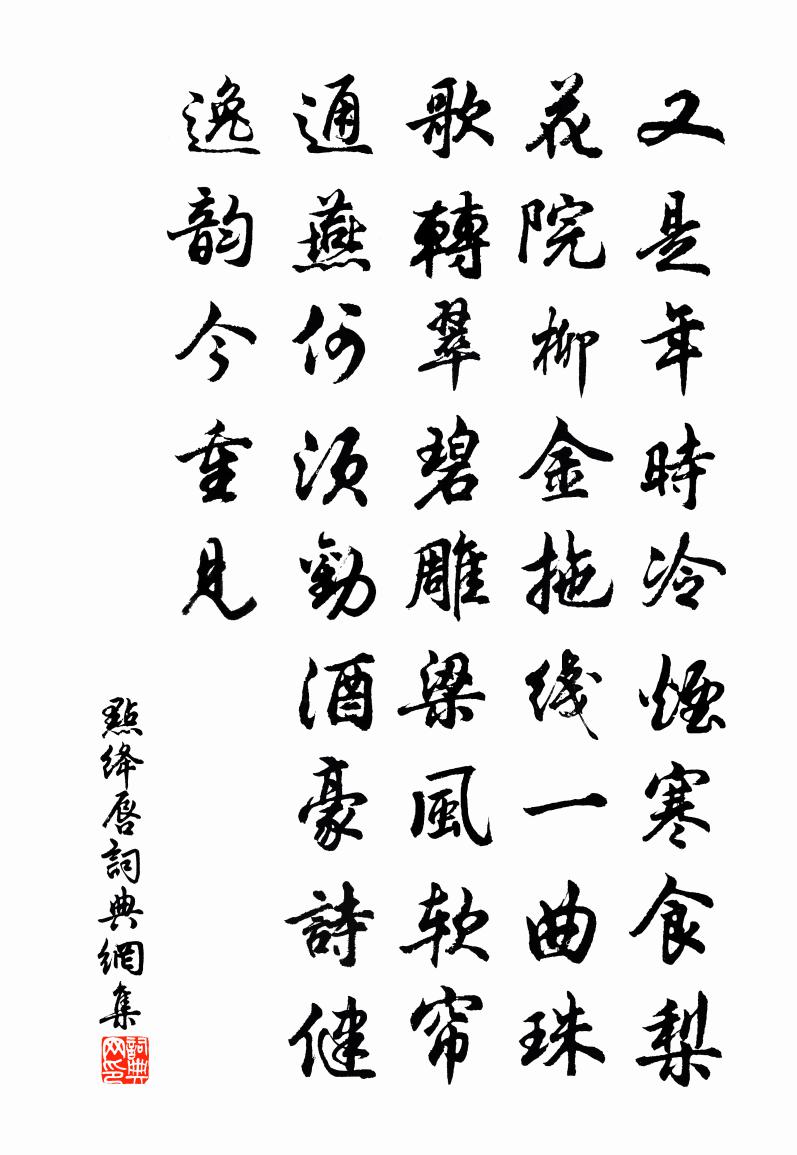 又是年時冷煙寒食梨
花院柳金拖线一曲珠
歌轉翠碧雕梁風软帘
通燕何须勸酒豪詩健
逸韵今重見
點绛唇詞典網集
詞典网印